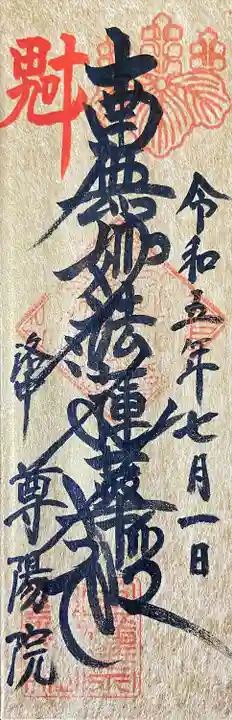 令和五年七月一日
南無妙法蓮華経
洛中 尊陽院